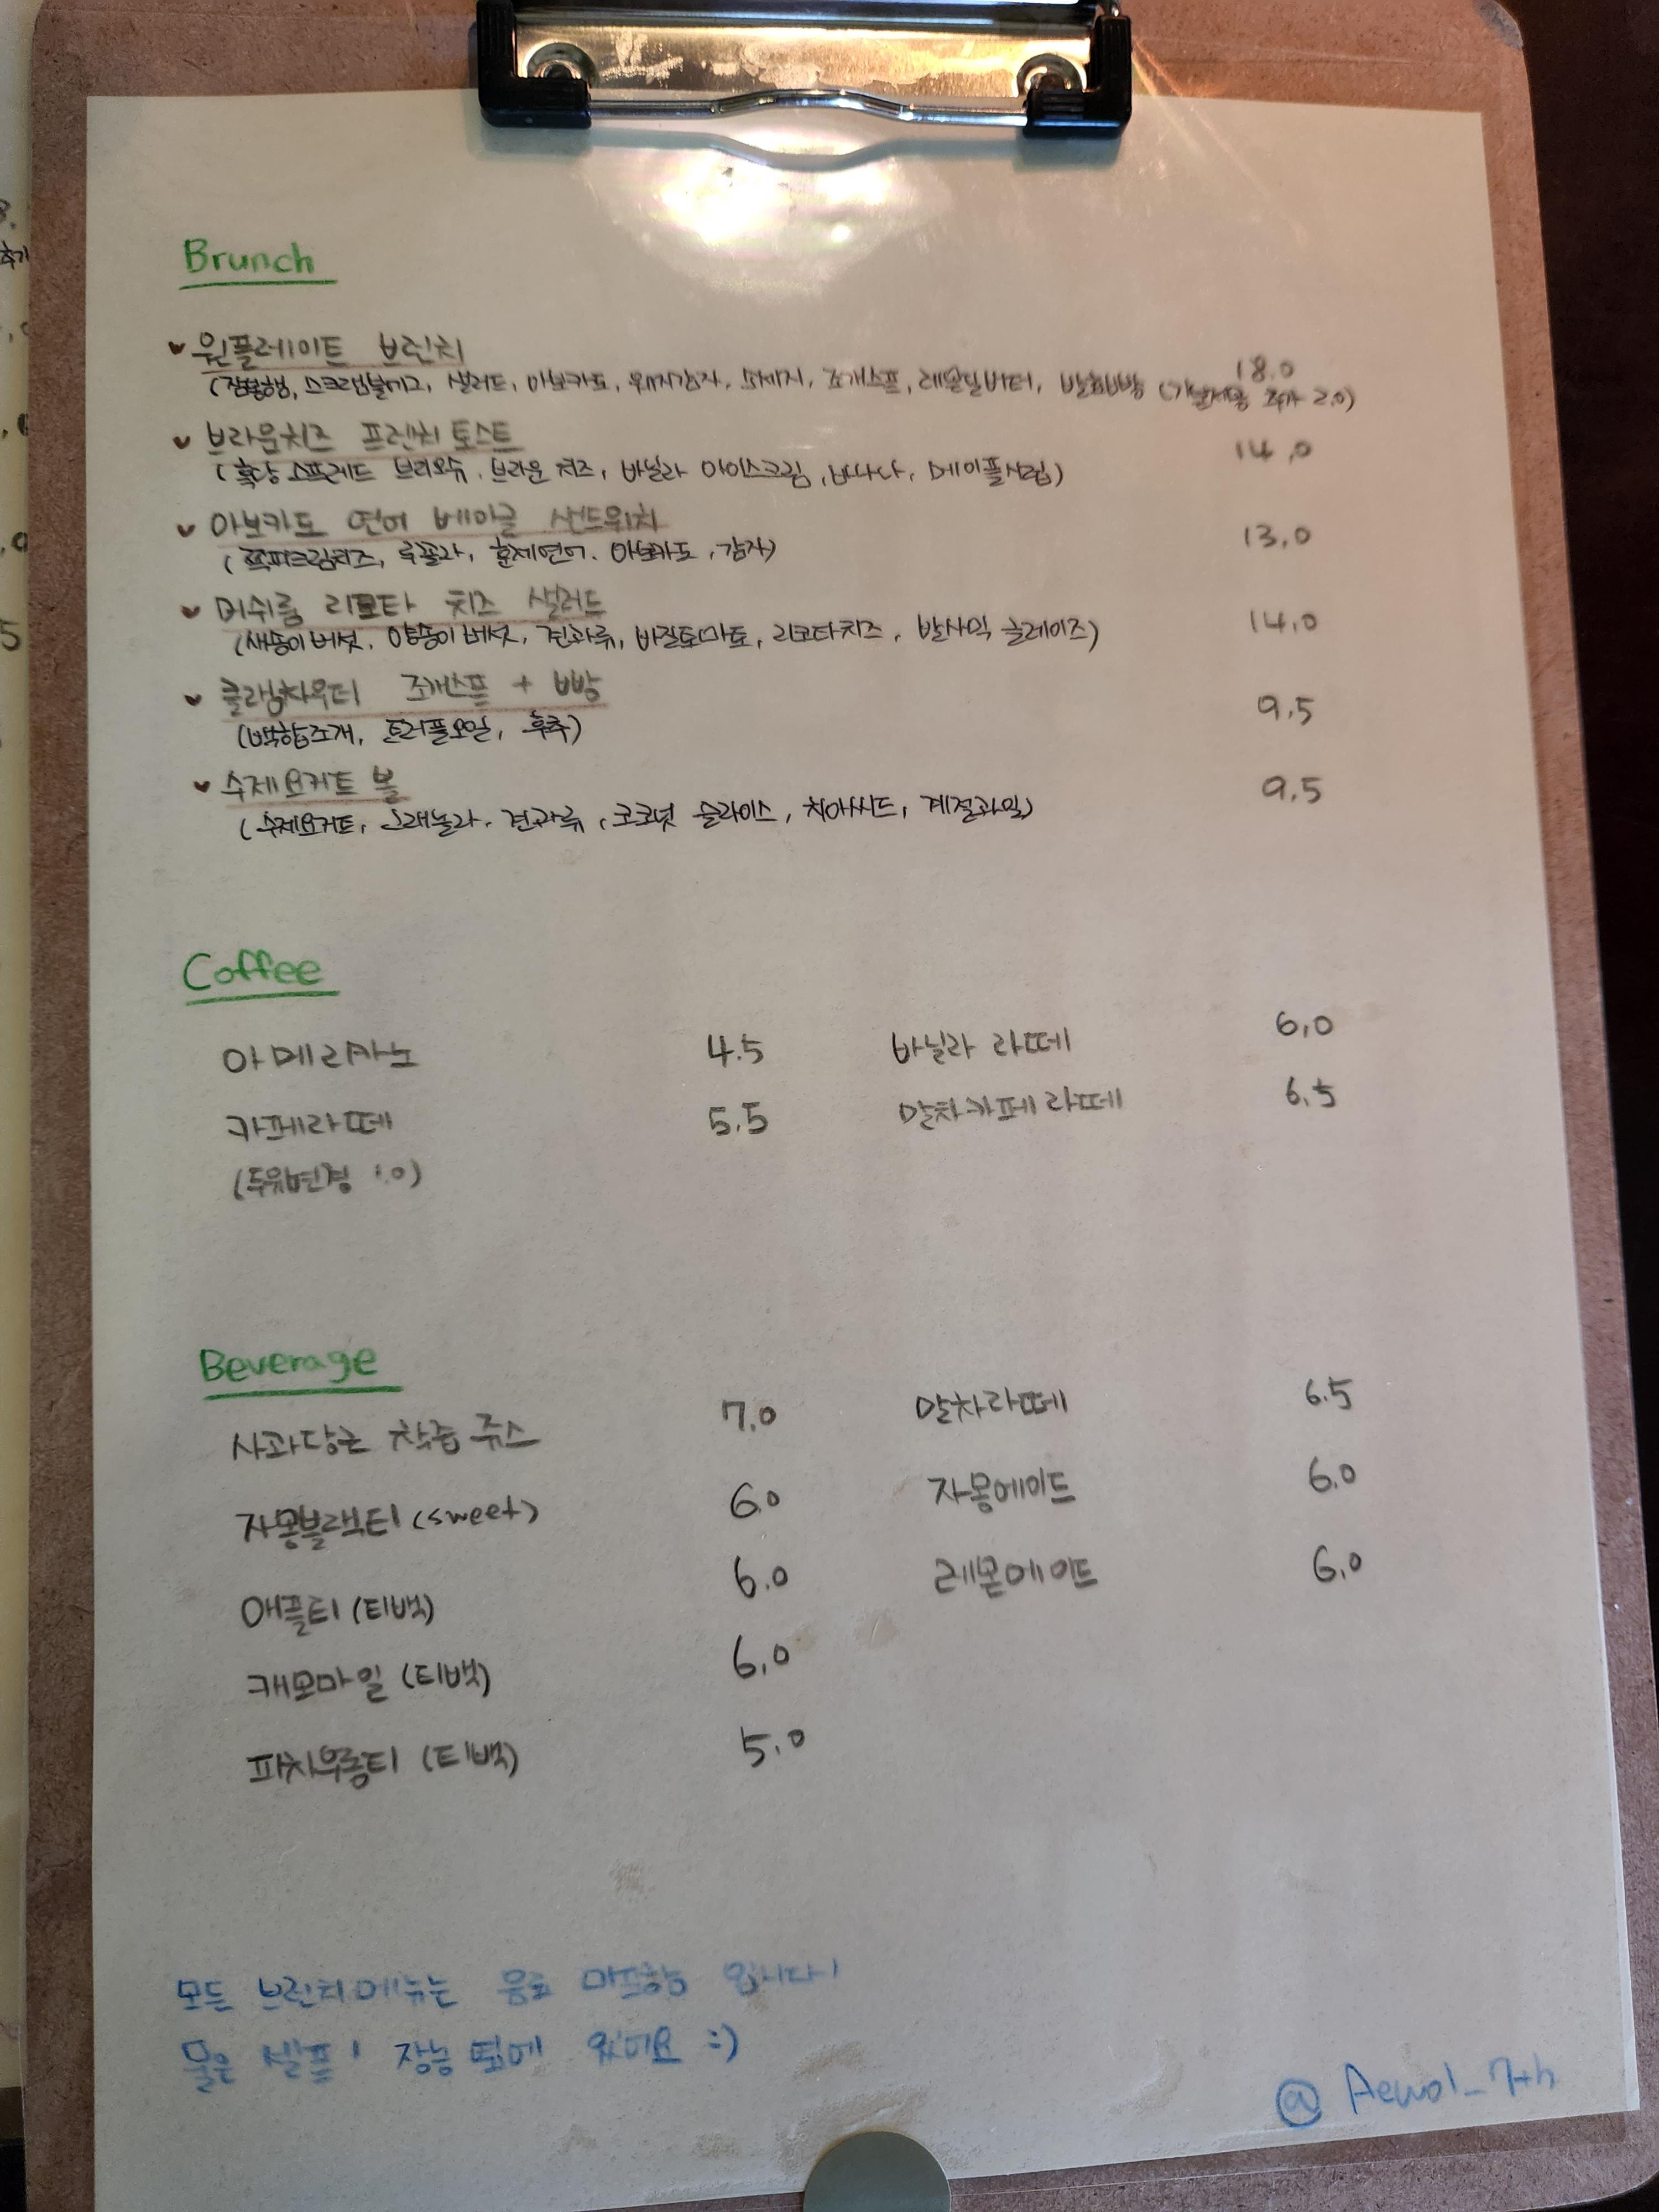 Brunch
원플레이트 브런치 18.0
(잠봉햄, 스크램블에그, 샐러드, 아보카도, 웨지감자, 소세지, 조개스프, 레몬딜버터, 발효빵 2.0)
브라운치즈 프렌치토스트 14.0
(흑당 스프레드 브리오슈, 브라운 치즈, 바닐라 아이스크림, 바나나, 메이플시럽)
아보카도 연어 베이글 샌드위치 13.0
(쪽파크림치즈, 루꼴라, 훈제연어, 아보카도, 감자)
머쉬룸 리코타 치즈 샐러드 14.0
(새송이버섯, 양송이버섯, 견과류, 바질토마토, 리코타치즈, 발사믹 글레이즈)
클램차우더 조개스프 + 빵 9.5
(백합조개, 트러플오일, 후추)
수제요거트 볼 9.5
(수제요거트, 그래놀라, 견과류, 코코넛 슬라이스, 치아씨드, 계절과일)
Coffee
아메리카노 4.5 바닐라 라떼 6.0
카페라떼 5.5 말차카페라떼 6.5
(두유변경 1.0)
Beverage
사과당근 착즙 쥬스 7.0 말차라떼 6.5
자몽블랙티 (sweet) 6.0 자몽에이드 6.0
애플티 (티백) 6.0 레몬에이드 6.0
캐모마일 (티백) 6.0
피치우롱티 (티백) 5.0
모든 브런치메뉴는 음료 미포함 입니다!
물은 셀프! 장농 옆에 있어요 :)
@ Aewol_7th